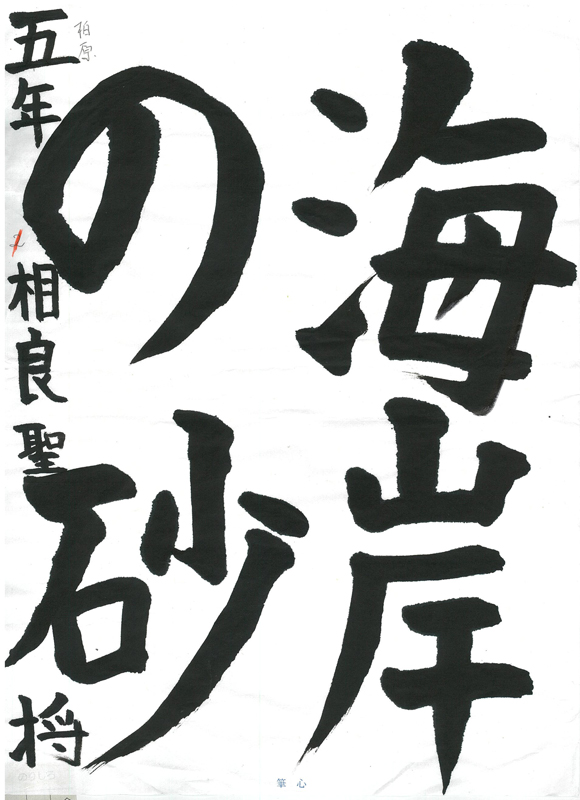 海岸
の砂
五年 相良聖将
柏原
筆心